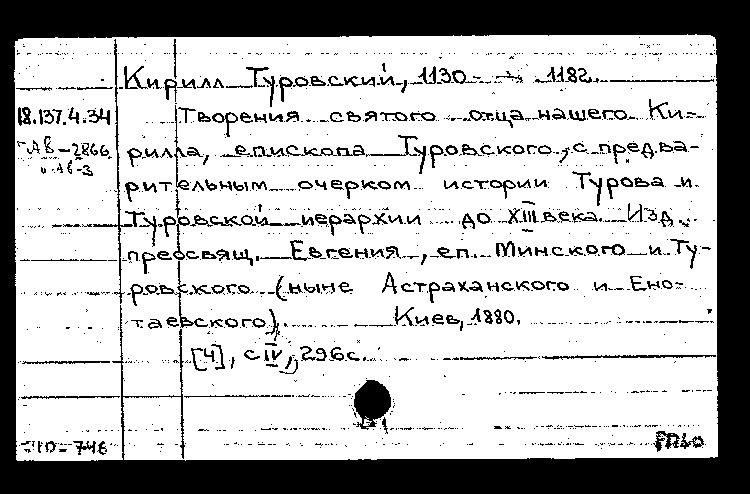 Кирилл Туровский, 1130 - 1182.
18.137.4.34 Творения святого отца нашего Ки-
АВ-2866 рилла, епископа Туровского, с предва-
рительным очерком истории Турова и
Туровской иерархии до XIII века. Изд.
преосвящ. Евгения, еп. Минского и Ту-
ровского (ныне Астраханского и Ено-
таевского). Киев, 1880.
[4], с IV, 296с.